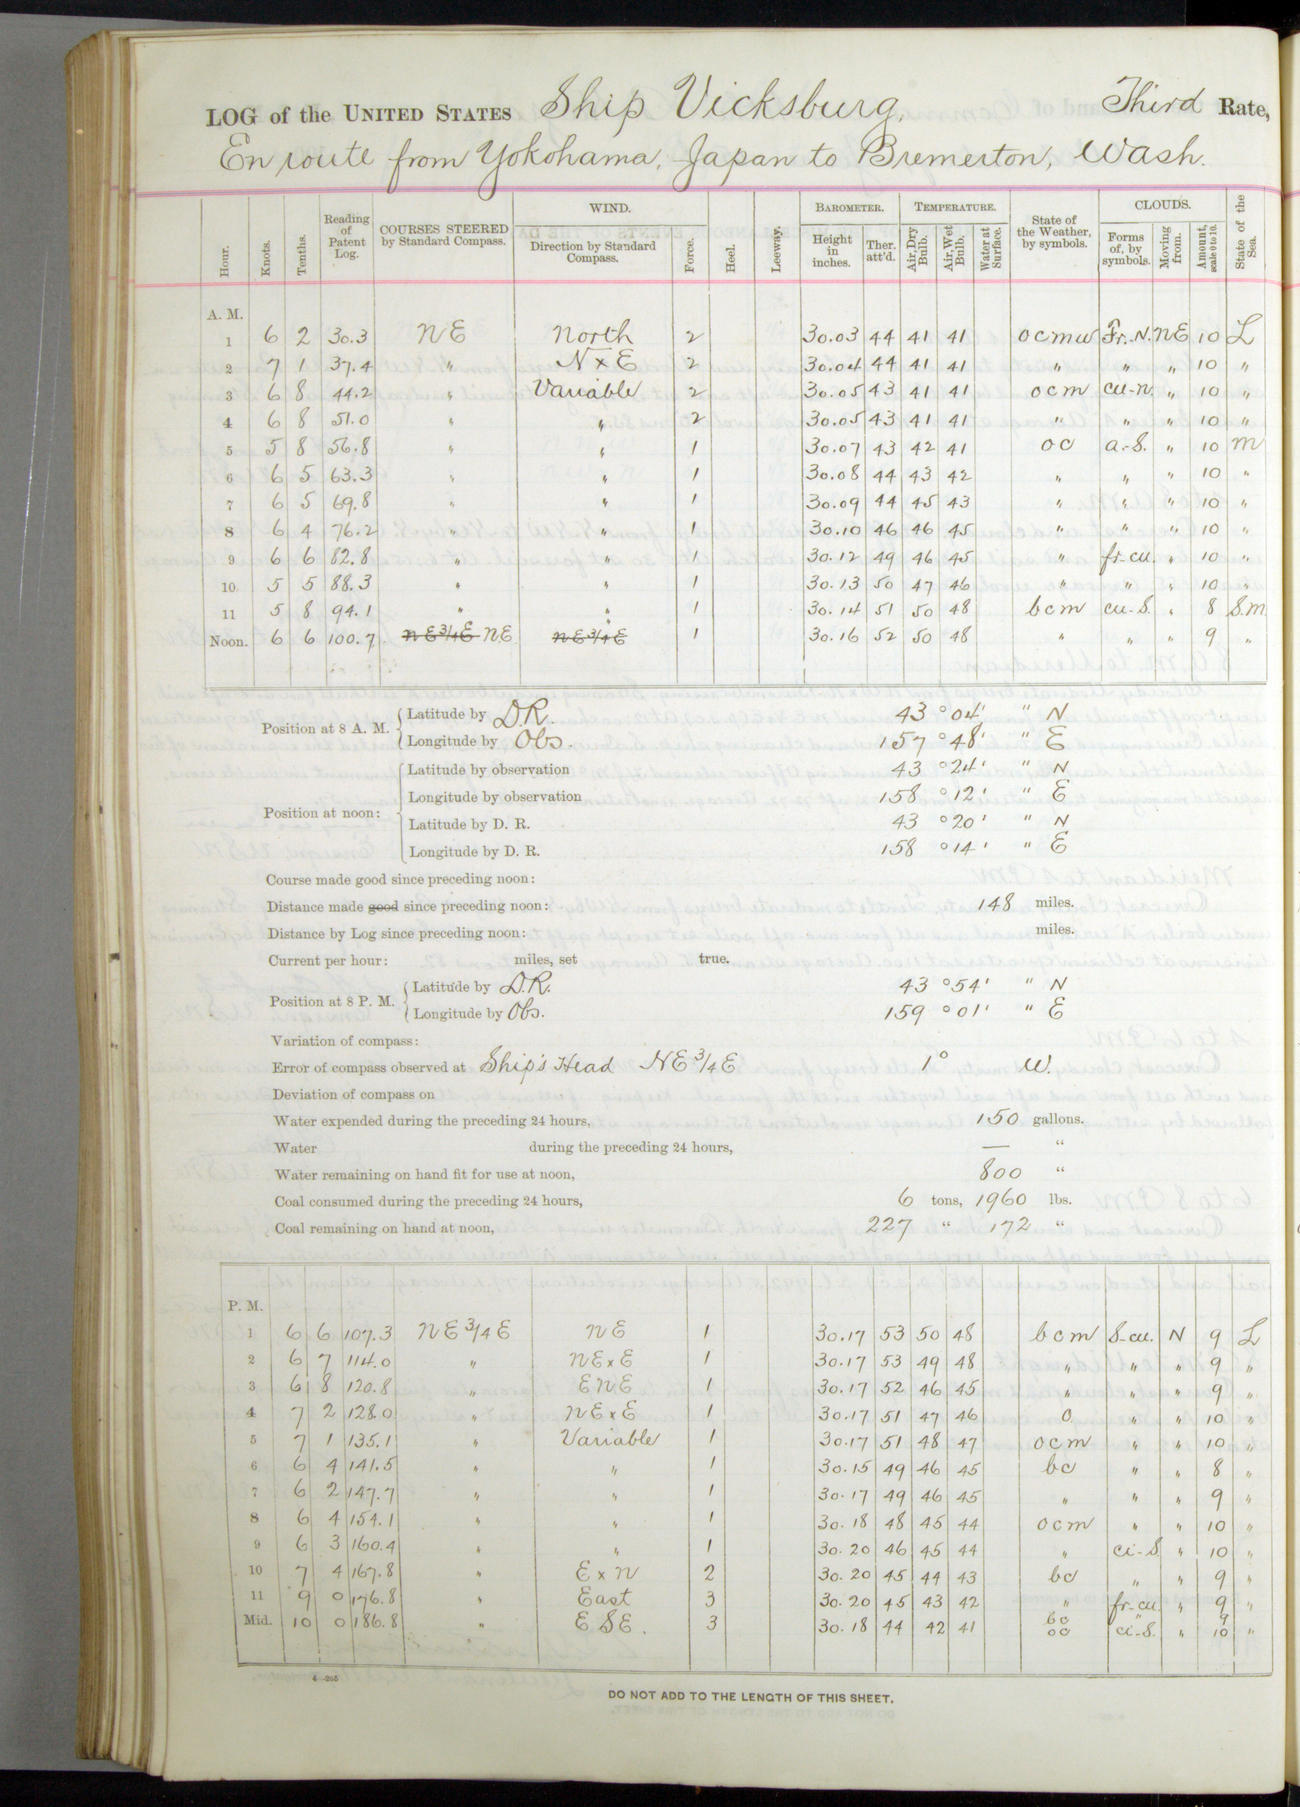 LOG of the UNITED STATES Ship Vicksburg, Third Rate,
En route from Yokohama, Japan to Bremerton, Wash.
Hour. Knots. Tenths. Reading of Patent Log. COURSES STEERED by Standard Compass. WIND. Direction by Standard Compass. Force. Heel. Leeway. BAROMETER. Height in inches. Ther. att'd. TEMPERATURE. Air, Dry Bulb. Air, Wet Bulb. Water at Surface. State of the Weather, by symbols. CLOUDS. Forms of, by symbols. Moving from. Amount, scale 0 to 10. State of the Sea.
A. M.
1 6 2 30.3 NE North 2 30.03 44 41 41 ocmw Fr.-N. NE 10 L
2 7 1 37.4 " N x E 2 30.04 44 41 41 " " " 10 "
3 6 8 44.2 " Variable 2 30.05 43 41 41 ocm cu-n. " 10 "
4 6 8 51.0 " " 2 30.05 43 41 41 " " " 10 "
5 5 8 56.8 " " 1 30.07 43 42 41 oc a.-S. " 10 M
6 6 5 63.3 " " 1 30.08 44 43 42 " " " 10 "
7 6 5 69.8 " " 1 30.09 44 45 43 " " " 10 "
8 6 4 76.2 " " 1 30.10 46 46 45 " " " 10 "
9 6 6 82.8 " " 1 30.12 49 46 45 " fr-cu. " 10 "
10 5 5 88.3 " " 1 30.13 50 47 46 " " " 10 "
11 5 8 94.1 " " 1 30.14 51 50 48 bcm cu-S. " 8 S.M
Noon. 6 6 100.7 NE3/4E NE " NE3/4E 1 30.16 52 50 48 " " " 9 "
Position at 8 A. M. Latitude by D.R. 43 ° 04' " N
Longitude by Obs. 157 ° 48' " E
Position at noon: Latitude by observation 43 ° 24' " N
Longitude by observation 158 ° 12' " E
Latitude by D. R. 43 ° 20' " N
Longitude by D. R. 158 ° 14' " E
Course made good since preceding noon:
Distance made good since preceding noon: 148 miles.
Distance by Log since preceding noon: miles.
Current per hour: miles, set true.
Position at 8 P. M. Latitude by D.R. 43 ° 54' " N
Longitude by Obs. 159 ° 01' " E
Variation of compass:
Error of compass observed at Ship's Head NE 3/4 E 1° W.
Deviation of compass on
Water expended during the preceding 24 hours, 150 gallons.
Water during the preceding 24 hours, — "
Water remaining on hand fit for use at noon, 800 "
Coal consumed during the preceding 24 hours, 6 tons, 1960 lbs.
Coal remaining on hand at noon, 227 " 172 "
P. M.
1 6 6 107.3 NE 3/4 E NE 1 30.17 53 50 48 bcm S-cu. N 9 L
2 6 7 114.0 " NE x E 1 30.17 53 49 48 " " " 9 "
3 6 8 120.8 " ENE 1 30.17 52 46 45 " " " 9 "
4 7 2 128.0 " NE x E 1 30.17 51 47 46 o " " 10 "
5 7 1 135.1 " Variable 1 30.17 51 48 47 ocm " " 10 "
6 6 4 141.5 " " 1 30.15 49 46 45 bc " " 8 "
7 6 2 147.7 " " 1 30.17 49 46 45 " " " 9 "
8 6 4 154.1 " " 1 30.18 48 45 44 ocm " " 10 "
9 6 3 160.4 " " 1 30.20 46 45 44 " ci-S " 10 "
10 7 4 167.8 " E x N 2 30.20 45 44 43 bc " " 9 "
11 9 0 176.8 " East 3 30.20 45 43 42 " fr-cu. " 9 "
Mid. 10 0 186.8 " ESE. 3 30.18 44 42 41 bc oc " ci-S. " 9 10 "
4—205
DO NOT ADD TO THE LENGTH OF THIS SHEET.